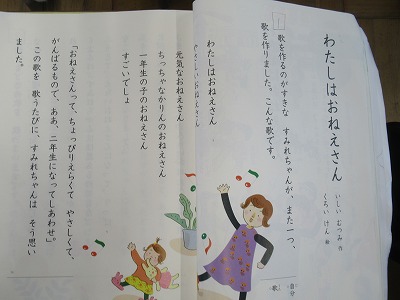 わたしはおねえさん
いしい むつみ 作
くろい けん 絵
1
歌を作るのがすきな すみれちゃんが、また一つ、
歌を作りました。こんな歌です。
歌
自分
わたしはおねえさん
やさしいおねえさん
元気なおねえさん
ちっちゃなかりんのおねえさん
一年生の子のおねえさん
すごいでしょ
「おねえさんって、ちょっぴりえらくて やさしくて、
がんばるもので、ああ、二年生になってしあわせ。」
この歌を 歌うたびに、すみれちゃんは そう思い
ました。